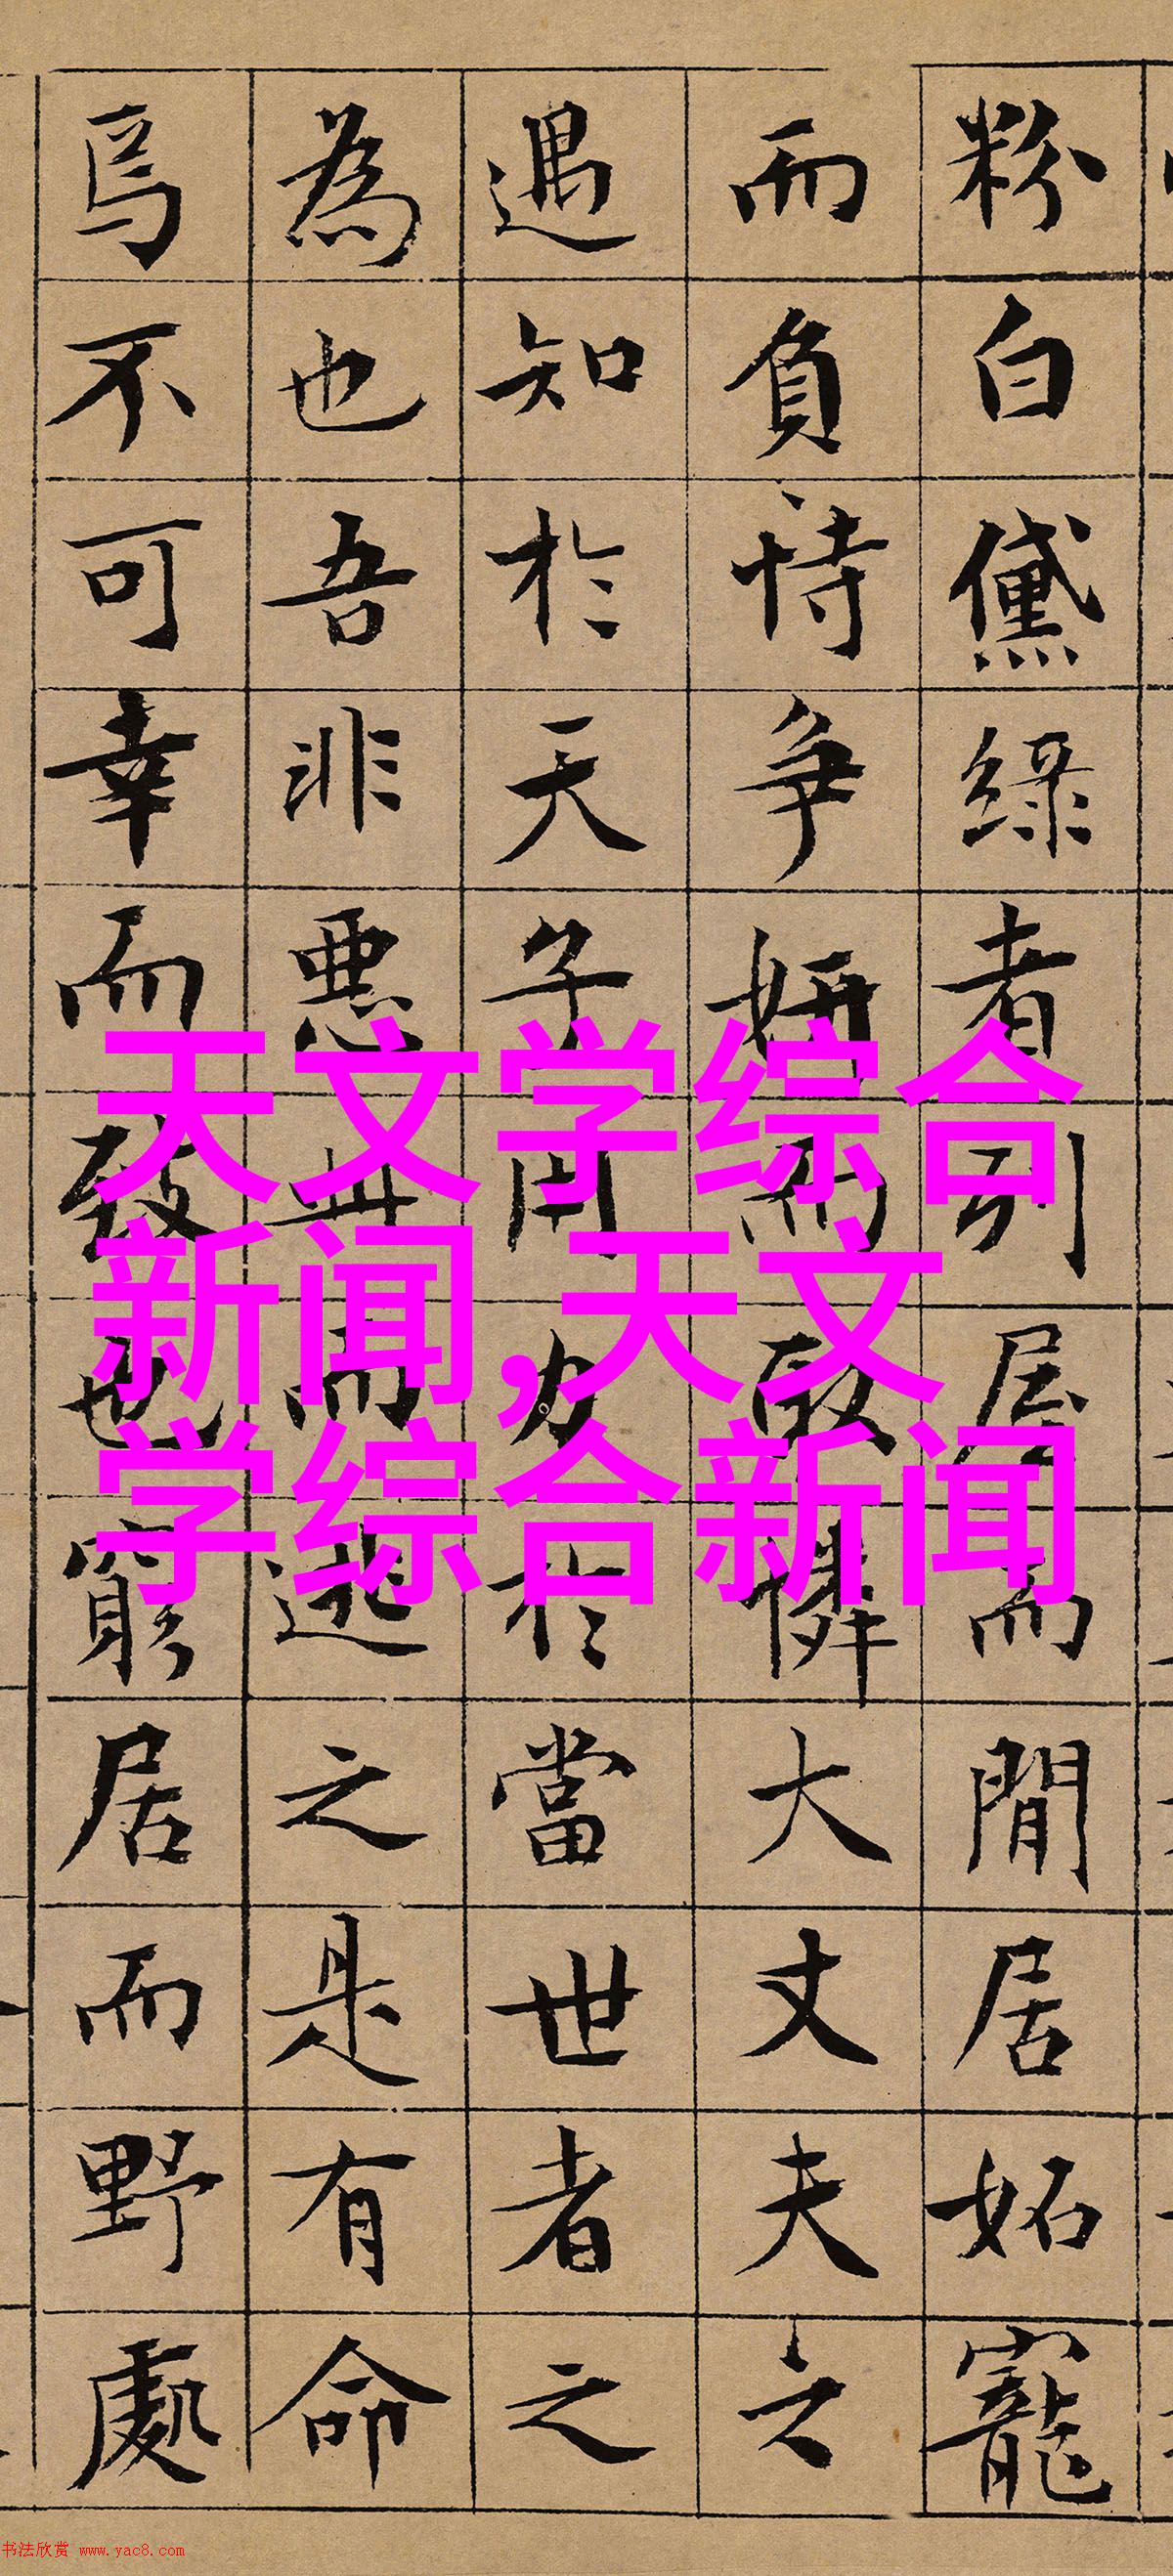 粉白黛綠者列屋而閒居妬寵
而負恃爭妍而取憐大丈夫之
遇知於天子用力於當世者之
為也吾非惡此而逃之是有命
焉不可幸而致也窮居而野處
天文学综合
新闻,天文
学综合新闻
书法欣赏 www.yac8.com